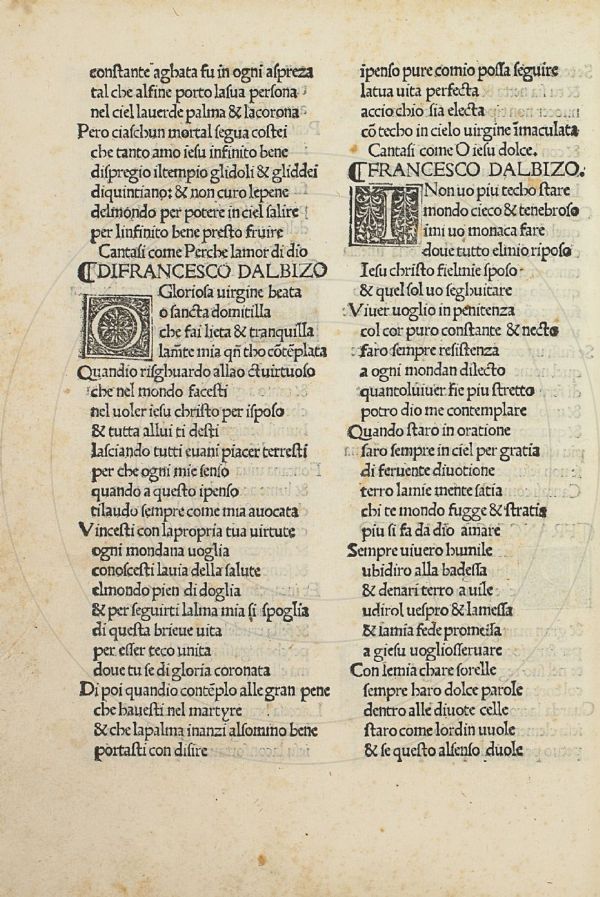 constante aghata fu in ogni aspreza
tal che alfine porto lasua persona
nel ciel lauerde palma & lacorona
Pero ciaschun mortal segua costei
che tanto amo iesu infinito bene
dispregio iltempio glidoli & gliddei
diquintiano: & non curo lepene
delmondo per potere in ciel salire
per linfinito bene presto fruire
Cantasi come Perche lamor di dio
⸿DIFRANCESCO DALBIZO
O Gloriosa virgine beata
o sancta domitilla
che fai lieta & tranquilla
lamẽte mia qñ tho cõtẽplata
Quandio risghuardo allao ctuirtuoso
che nel mondo facesti
nel uoler iesu christo per isposo
& tutta allui ti desti
lasciando tutti euani piacer terresti
per che ogni mie senso
quando a questo ipenso
tilaudo sempre come mia auocata
Vincesti con lapropria tua uirtute
ogni mondana uoglia
conoscesti lauia della salute
elmondo pien di doglia
& per seguirti lalma mia si spoglia
di questa brieue uita
per esser teco unita
doue tu se di gloria coronata
Di poi quandio contẽplo alle gran pene
che hauesti nel martyre
& che lapalma inanzi alsommo bene
portasti con disire
ĩpenso pure comio possa seguire
latua uita perfecta
accio chio sia electa
cõ techo in cielo uirgine ĩmaculata
Cantasi come O iesu dolce.
⸿FRANCESCO DALBIZO.
I Non uo piu techo stare
mondo cieco & tenebroso
imi uo monaca fare
doue tutto elmio riposo
Iesu christo fielmie sposo
& quel sol uo seghuitare
Viuer uoglio in penitenza
col cor puro constante & necto
faro sempre resistenza
a ogni mondan dilecto
quantoluiuer fie piu stretto
potro dio me contemplare
Quando staro in oratione
faro sempre in ciel per gratia
di feruente diuotione
terro lamie mente satia
chi te mondo fugge & stratia
piu si fa da dio amare
Sempre uiuero humile
ubidiro alla badessa
& denari terro a uile
udirol uespro & lamessa
& lamia fede promessa
a giesu uogliosseruare
Con lemia chare sorelle
sempre haro dolce parole
dentro alle diuote celle
staro come lordin uuole
& se questo alsenso duole